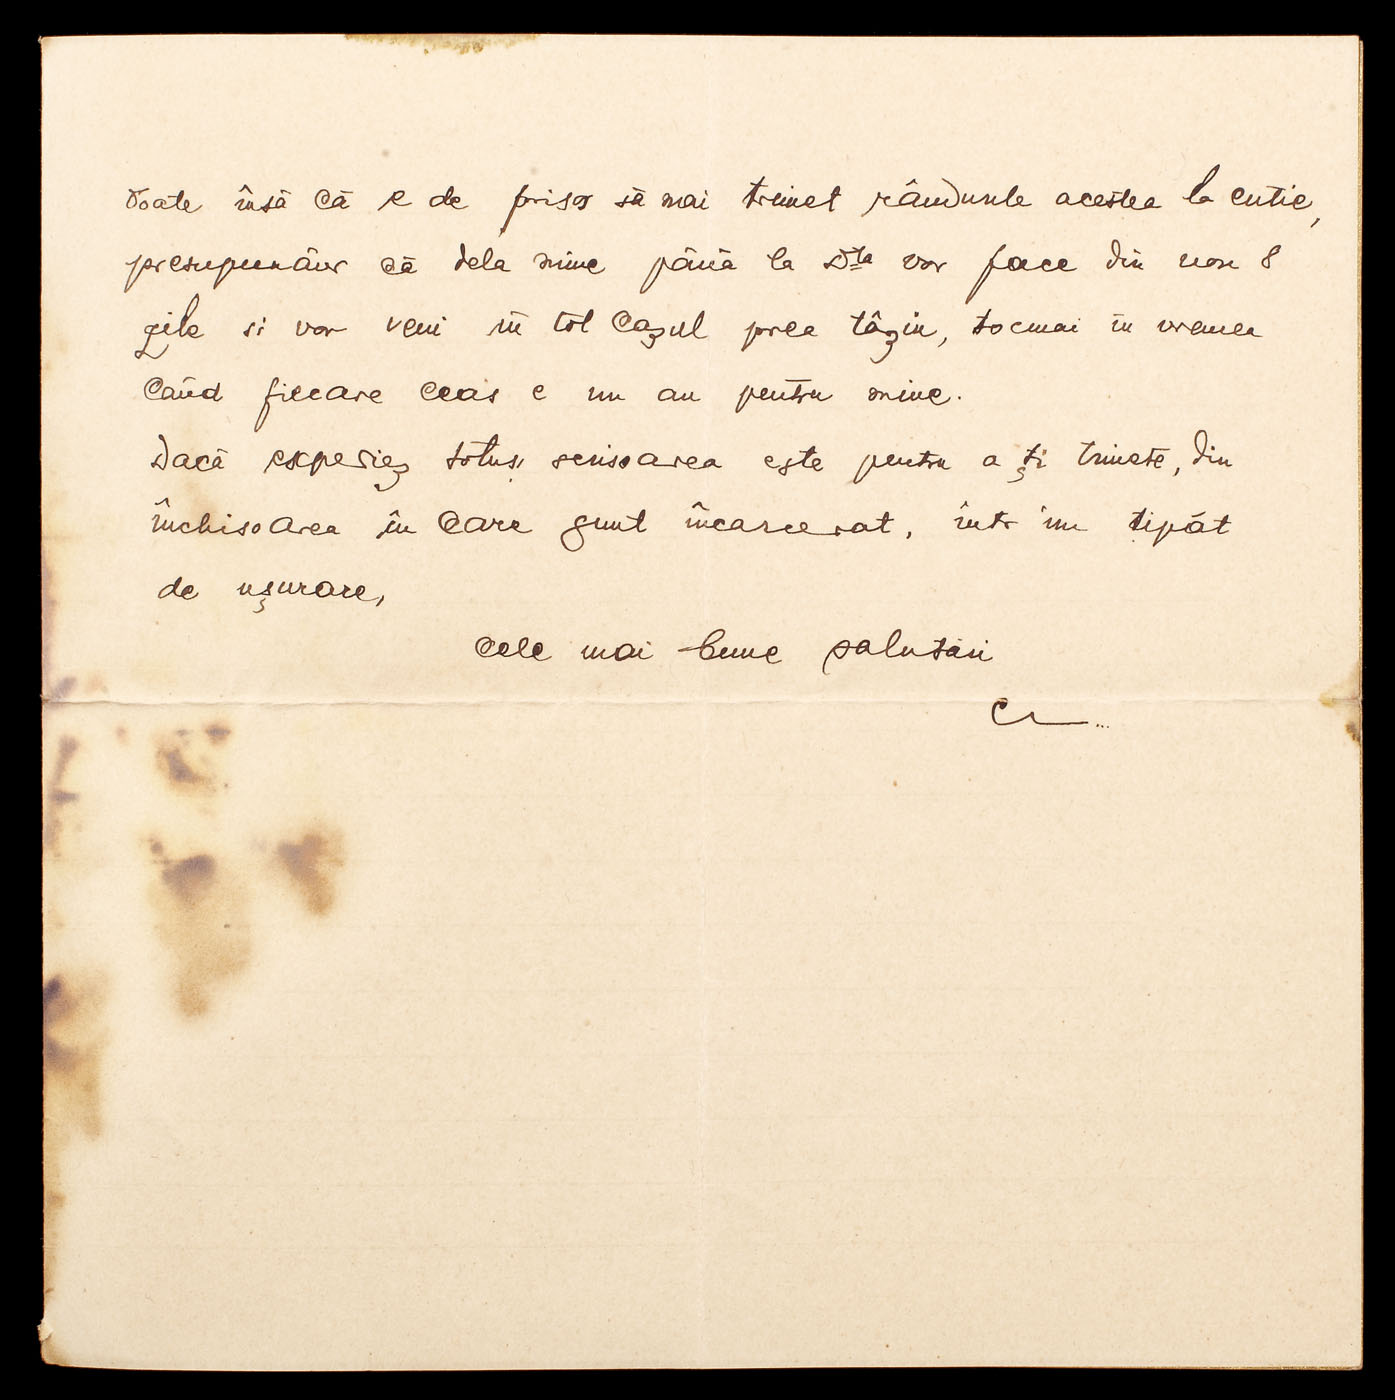 Poate însă că e de prisos să mai trimet rândurile acestea la cutie,
presupunând că dela mine până la Dta vor face din nou 8
zile si vor veni în tot cazul prea târziu, tocmai în vremea
când fiecare ceas e un an pentru mine.
Dacă expediez totuși scrisoarea este pentru a ți trimete, din
închisoarea în care sunt încarcerat, într'un tipăt
de ușurare,
cele mai bune salutări